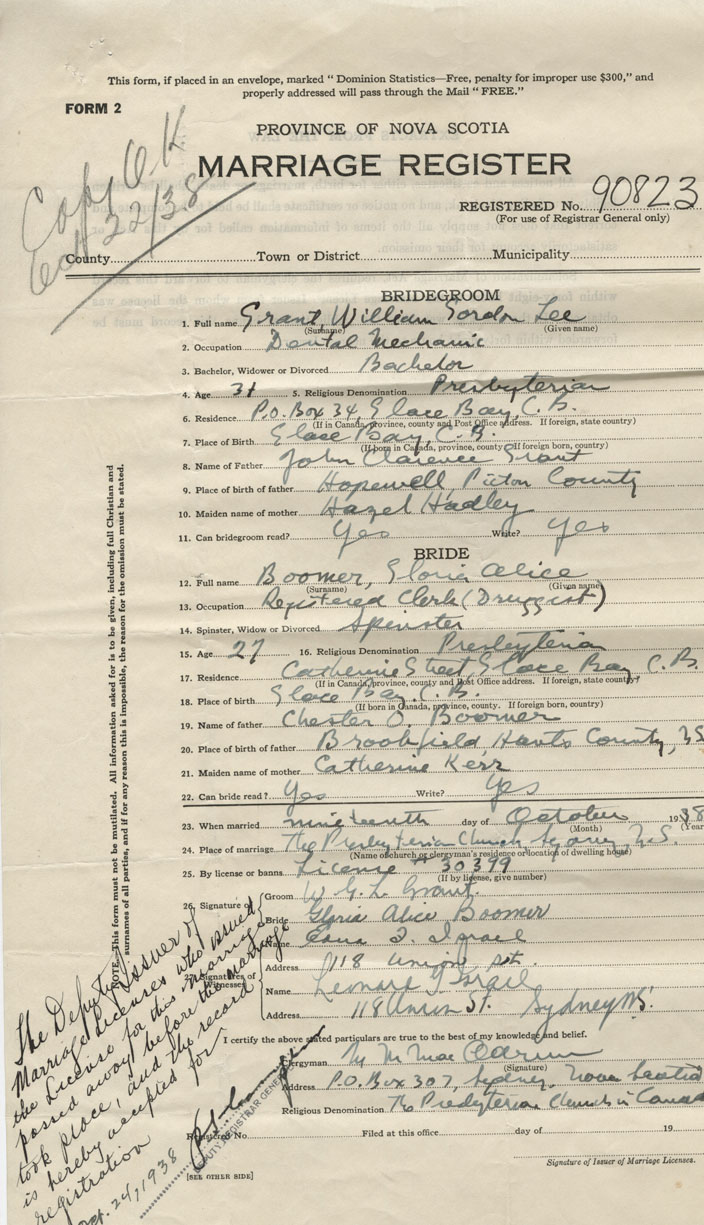 This form, if placed in an envelope, marked “ Dominion Statistics—Free, penalty for improper use $300,” and
properly addressed will pass through the Mail “ FREE.”
FORM 2
PROVINCE OF NOVA SCOTIA
MARRIAGE REGISTER
Copy O.K
22/38
REGISTERED No. 90823
(For use of Registrar General only)
County Town or District Municipality
BRIDEGROOM
1. Full name Grant, William Gordon Lee
(Surname) (Given name)
2. Occupation Dental Mechanic
3. Bachelor, Widower or Divorced Bachelor
4. Age 31 5. Religious Denomination Presbyterian
6. Residence P.O. Box 34, Glace Bay, C.B.
(If in Canada, province, county and Post Office address. If foreign, state country)
7. Place of Birth Glace Bay, C.B.
(If born in Canada, province, county If foreign born, country)
8. Name of Father John Clarence Grant
9. Place of birth of father Hopewell, Pictou County
10. Maiden name of mother Hazel Hadley
11. Can bridegroom read? Yes Write? Yes
BRIDE
12. Full name Boomer, Gloria Alice
(Surname) (Given name)
13. Occupation Registered Clerk (Druggist)
14. Spinster, Widow or Divorced Spinster
15. Age 27 16. Religious Denomination Presbyterian
17. Residence Catherine Street Glace Bay C.B.
(If in Canada, province, county and Post Office address. If foreign, state country)
18. Place of birth Glace Bay, C.B.
(If born in Canada, province, county. If foreign born, country)
19. Name of father Chester O. Boomer
20. Place of birth of father Brookfield Hants County, NS
21. Maiden name of mother Catherine Kerr
22. Can bride read? Yes Write? Yes
23. When married nineteenth day of October 1938
(Month) (Year)
24. Place of marriage The Presbyterian Church Sydney, N.S.
(Name of church or clergyman's residence or location of dwelling house)
25. By license or banns License # 30399
(If by license, give number)
26. Signature of Groom W G. L. Grant.
Bride Gloria Alice Boomer
27. Signatures of Witnesses Name Israel
Address 118 Union St.
Name Leonard Israel
Address 118 Union St. Sydney NS.
I certify the above stated particulars are true to the best of my knowledge and belief.
Clergyman
(Signature)
Address P.O. Box 307, Sydney, Nova Scotia
Religious Denomination The Presbyterian Church in Canada
Registered No. Filed at this office day of 19
Signature of Issuer of Marriage Licenses.
[SEE OTHER SIDE]
NOTE. This form must not be mutilated. All information asked for is to be given, including full Christian and
surnames of all parties, and if for any reason this is impossible, the reason for the omission must be stated.
The Deputy Issuer of
Marriage Licenses who issued
the License for this marriage
passed away before the marriage
took place, and the record
is hereby accepted for
registration
DEPUTY REGISTRAR GENERAL
Oct. 24, 1938